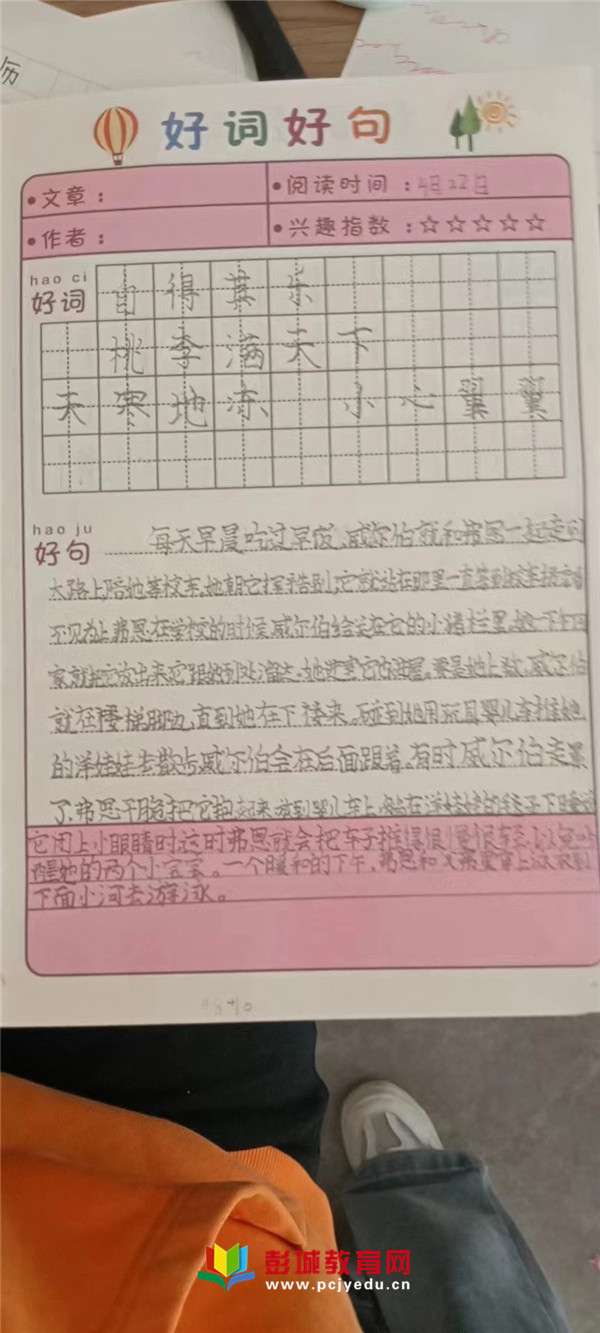 历
好词好句
•文章： •阅读时间：4月22日
•作者： •兴趣指数：☆☆☆☆☆
hao ci
好词 自得其乐
桃李满天下
天寒地冻 小心翼翼
hao ju
好句 每天早晨吃过早饭、威尔伯就和弗恩一起走到
大路上陪她等校车。她朝它挥手告别，它就站在那里一直等到校车
不见为止弗恩在学校的时候，威尔伯给关在它的小猪栏里。她一下午回
家就把它放出来它跟她到处溜达。她进屋它也进屋。要是她上楼，威尔伯
就在楼梯脚边，直到她在下楼来。碰到她用玩具婴儿车推她
的洋娃娃去散步，威尔伯会在后面跟着。有时威尔伯走累
了，弗恩干脆把它抱起来放到婴儿车上，躺在洋娃娃的
它闭上小眼睛时，这时弗恩就会把车子推得很慢很
醒她的两个小宝宝。一个暖和的下午，弗恩和
下面小河去游泳。
彭城教育网
www.pcjyedu.cn